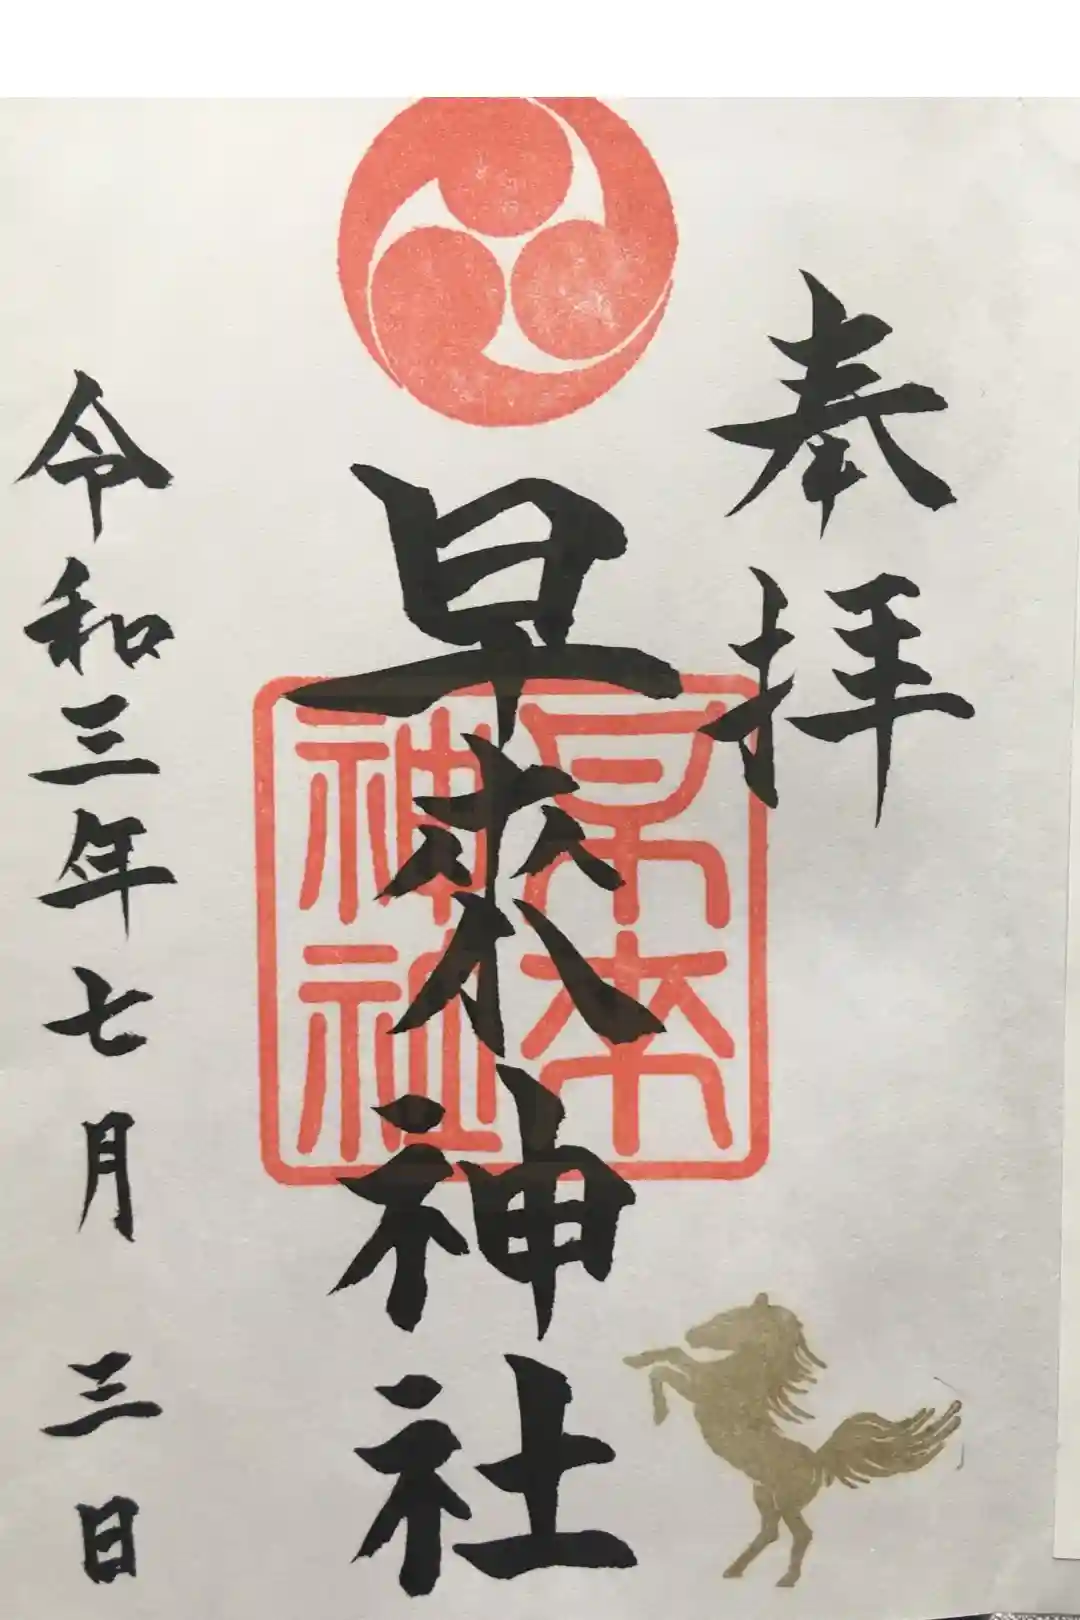 奉拝
早来神社
早来
神社
令和三年七月三日